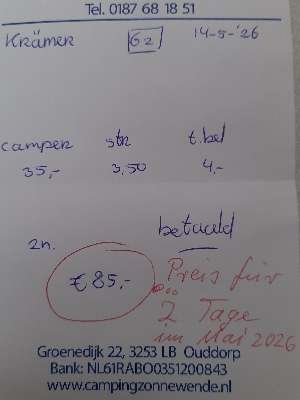 Tel. 0187 68 18 51
Krämer 62 14-5-'26
camper str t.bel
35,- 3,50 4,-
betaald
2n.
€85,-
Preis für
2 Tage
im Mai 2026
Groenedijk 22, 3253 LB Ouddorp
Bank: NL61RABO0351200843
www.campingzonnewende.nl